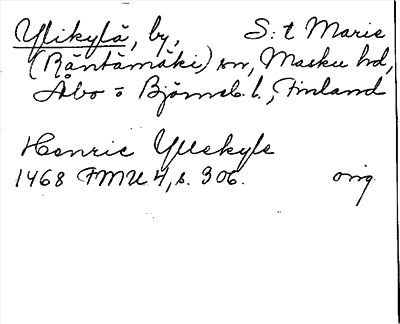 Ylikylä, by, S:t Marie
(Räntämäki) sn, Masku hd,
Åbo o Björneb. l., Finland
Henric Yllekyle
1468 FMU 4, s. 306. orig.